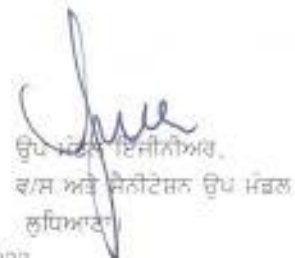 ਉਪ ਮੰਡਲ ਇੰਜੀਨੀਅਰ,
ਵ/ਸ ਅਤੇ ਸੈਨੀਟੇਸ਼ਨ ਉਪ ਮੰਡਲ
ਲੁਧਿਆਣਾ